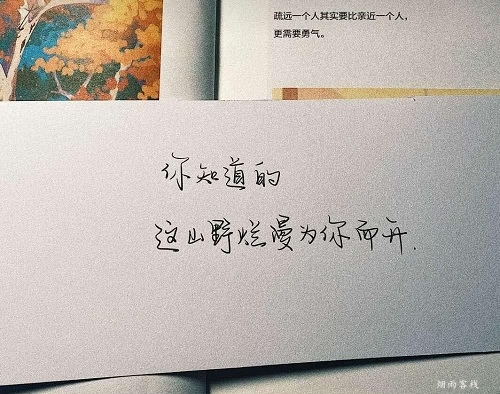 疏远一个人其实要比亲近一个人，
更需要勇气。
你知道的
这山野烂漫为你而开.
烟雨客栈